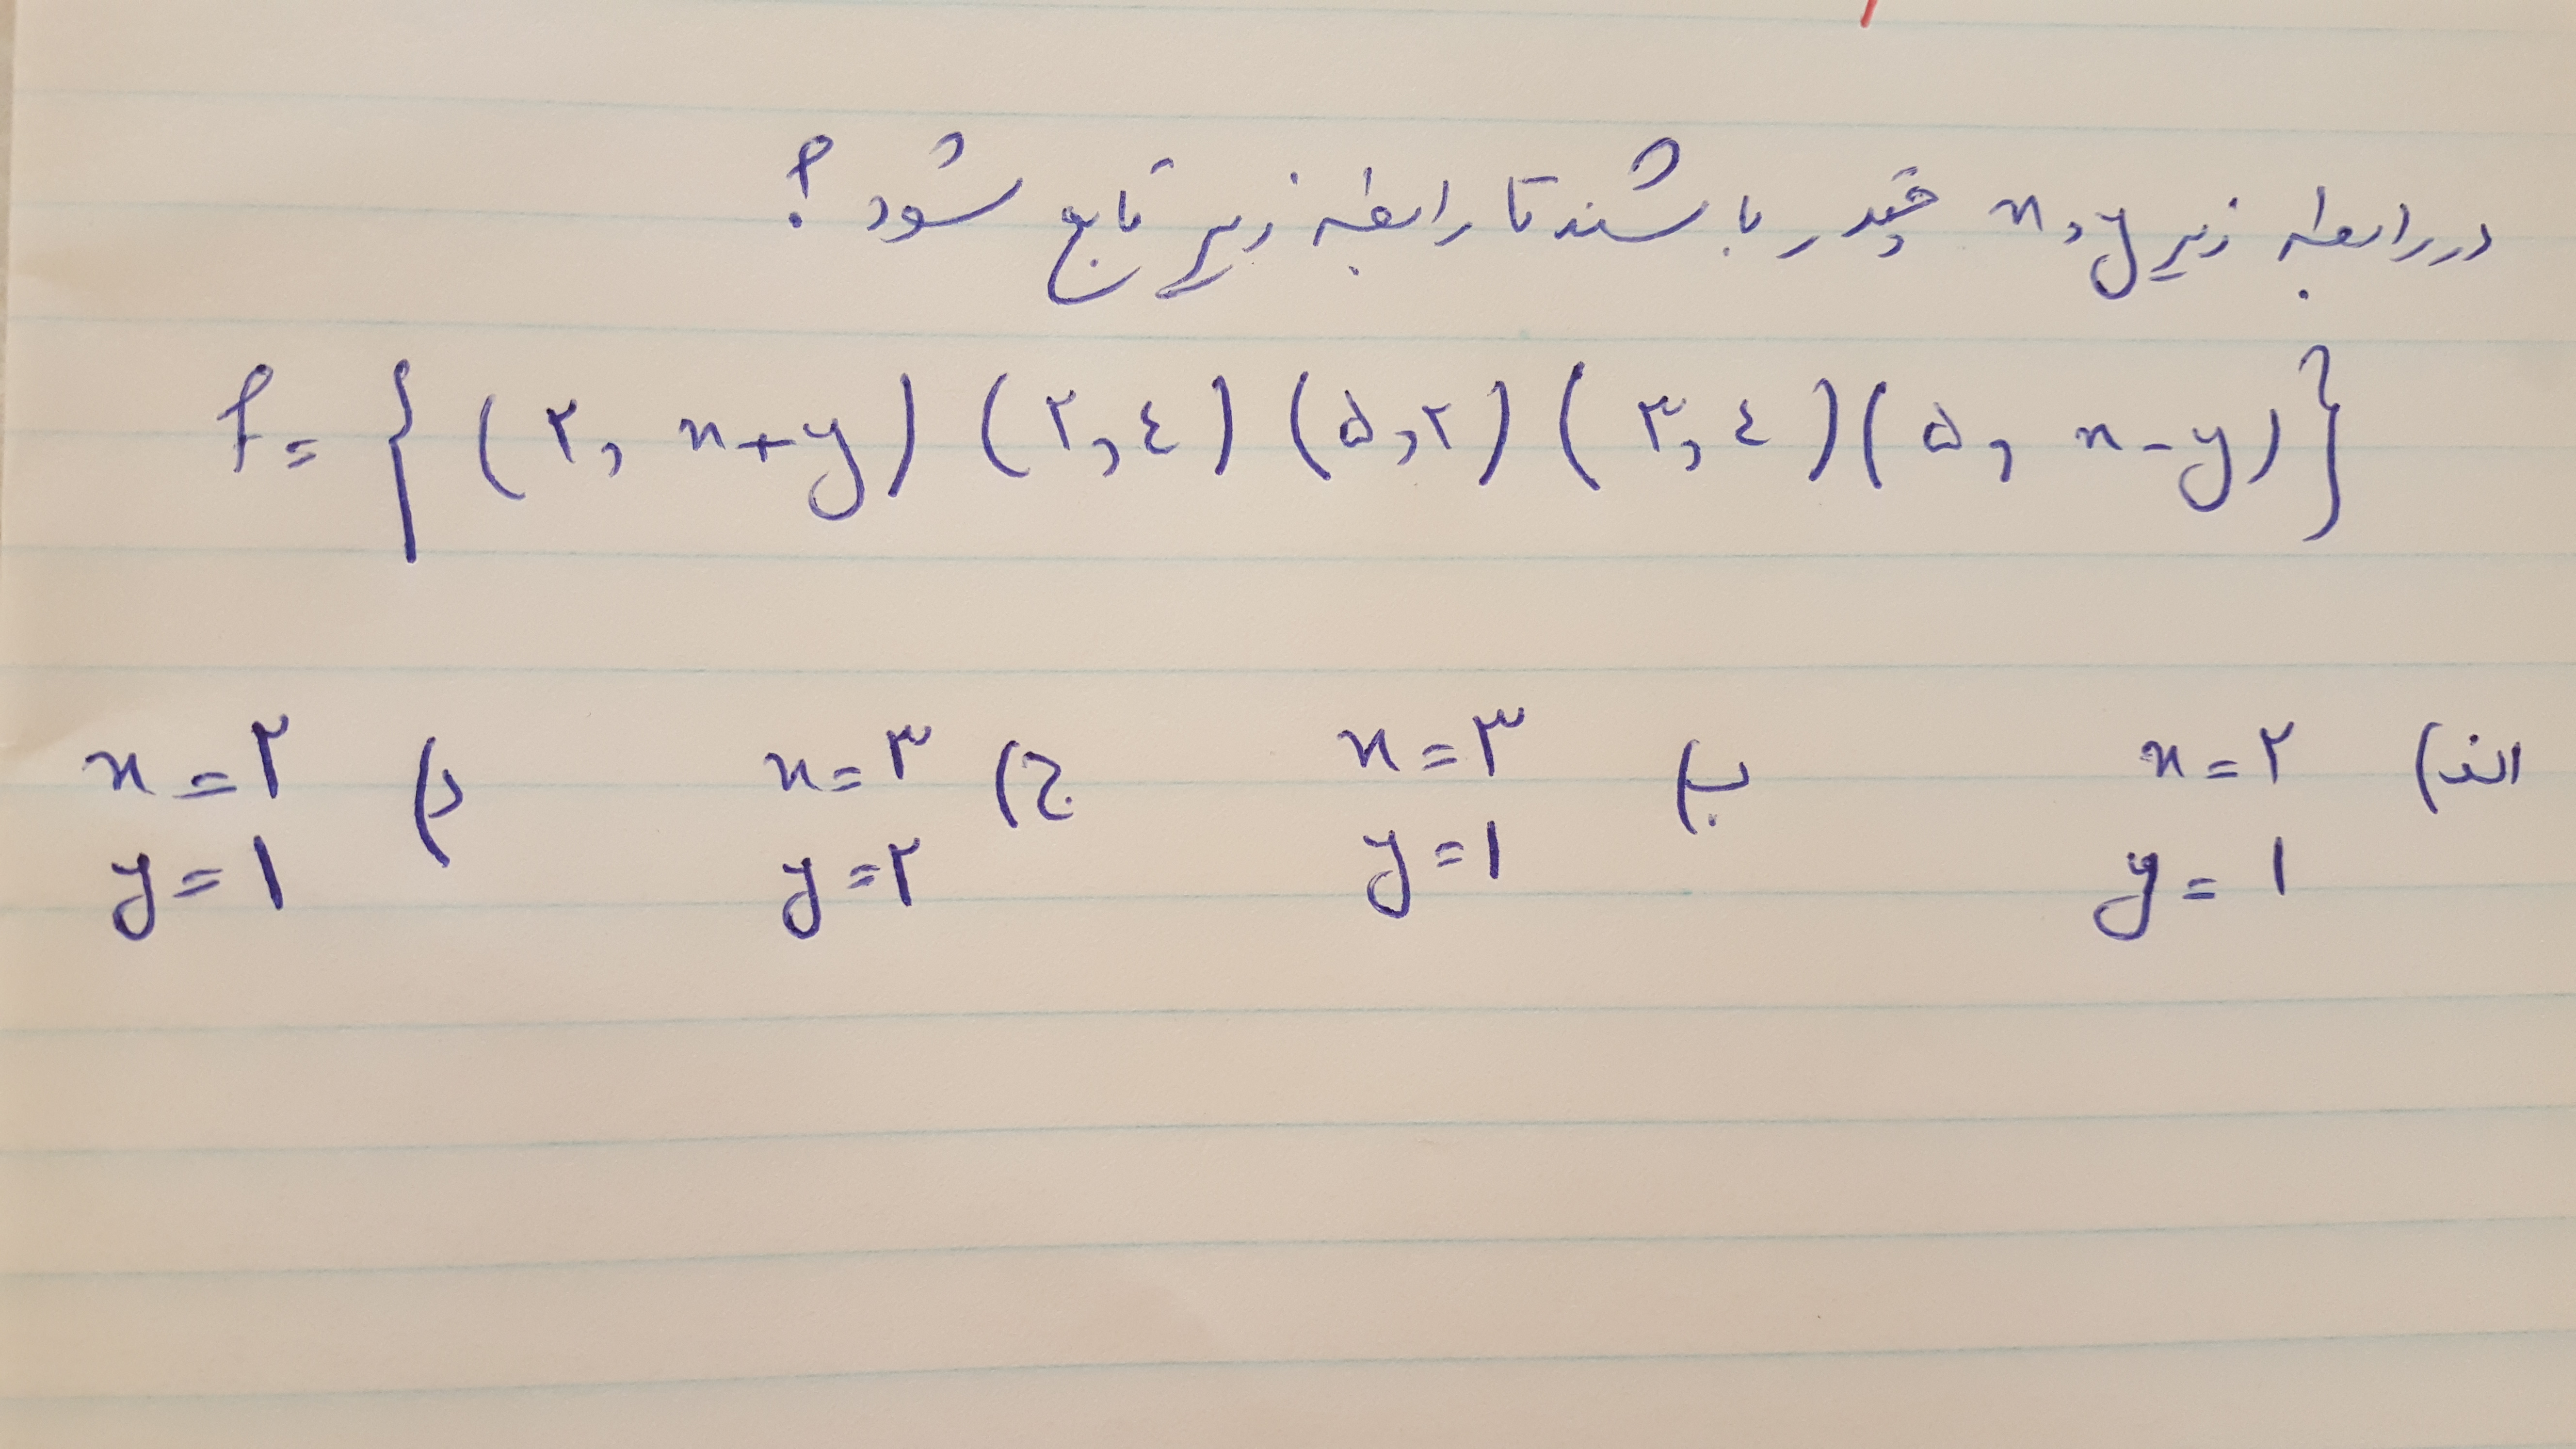 در رابطه زیر x,y چقدر باشند تا رابطه زیر تابع شود؟
f = { (۲, x+y) (۲,٤) (۵,۲) (۳,٤) (۵, x-y) }
الف) x=۲ ب) x=۳ ج) x=۳ د) x=۲
y=۱ y=۱ y=۲ y=۱